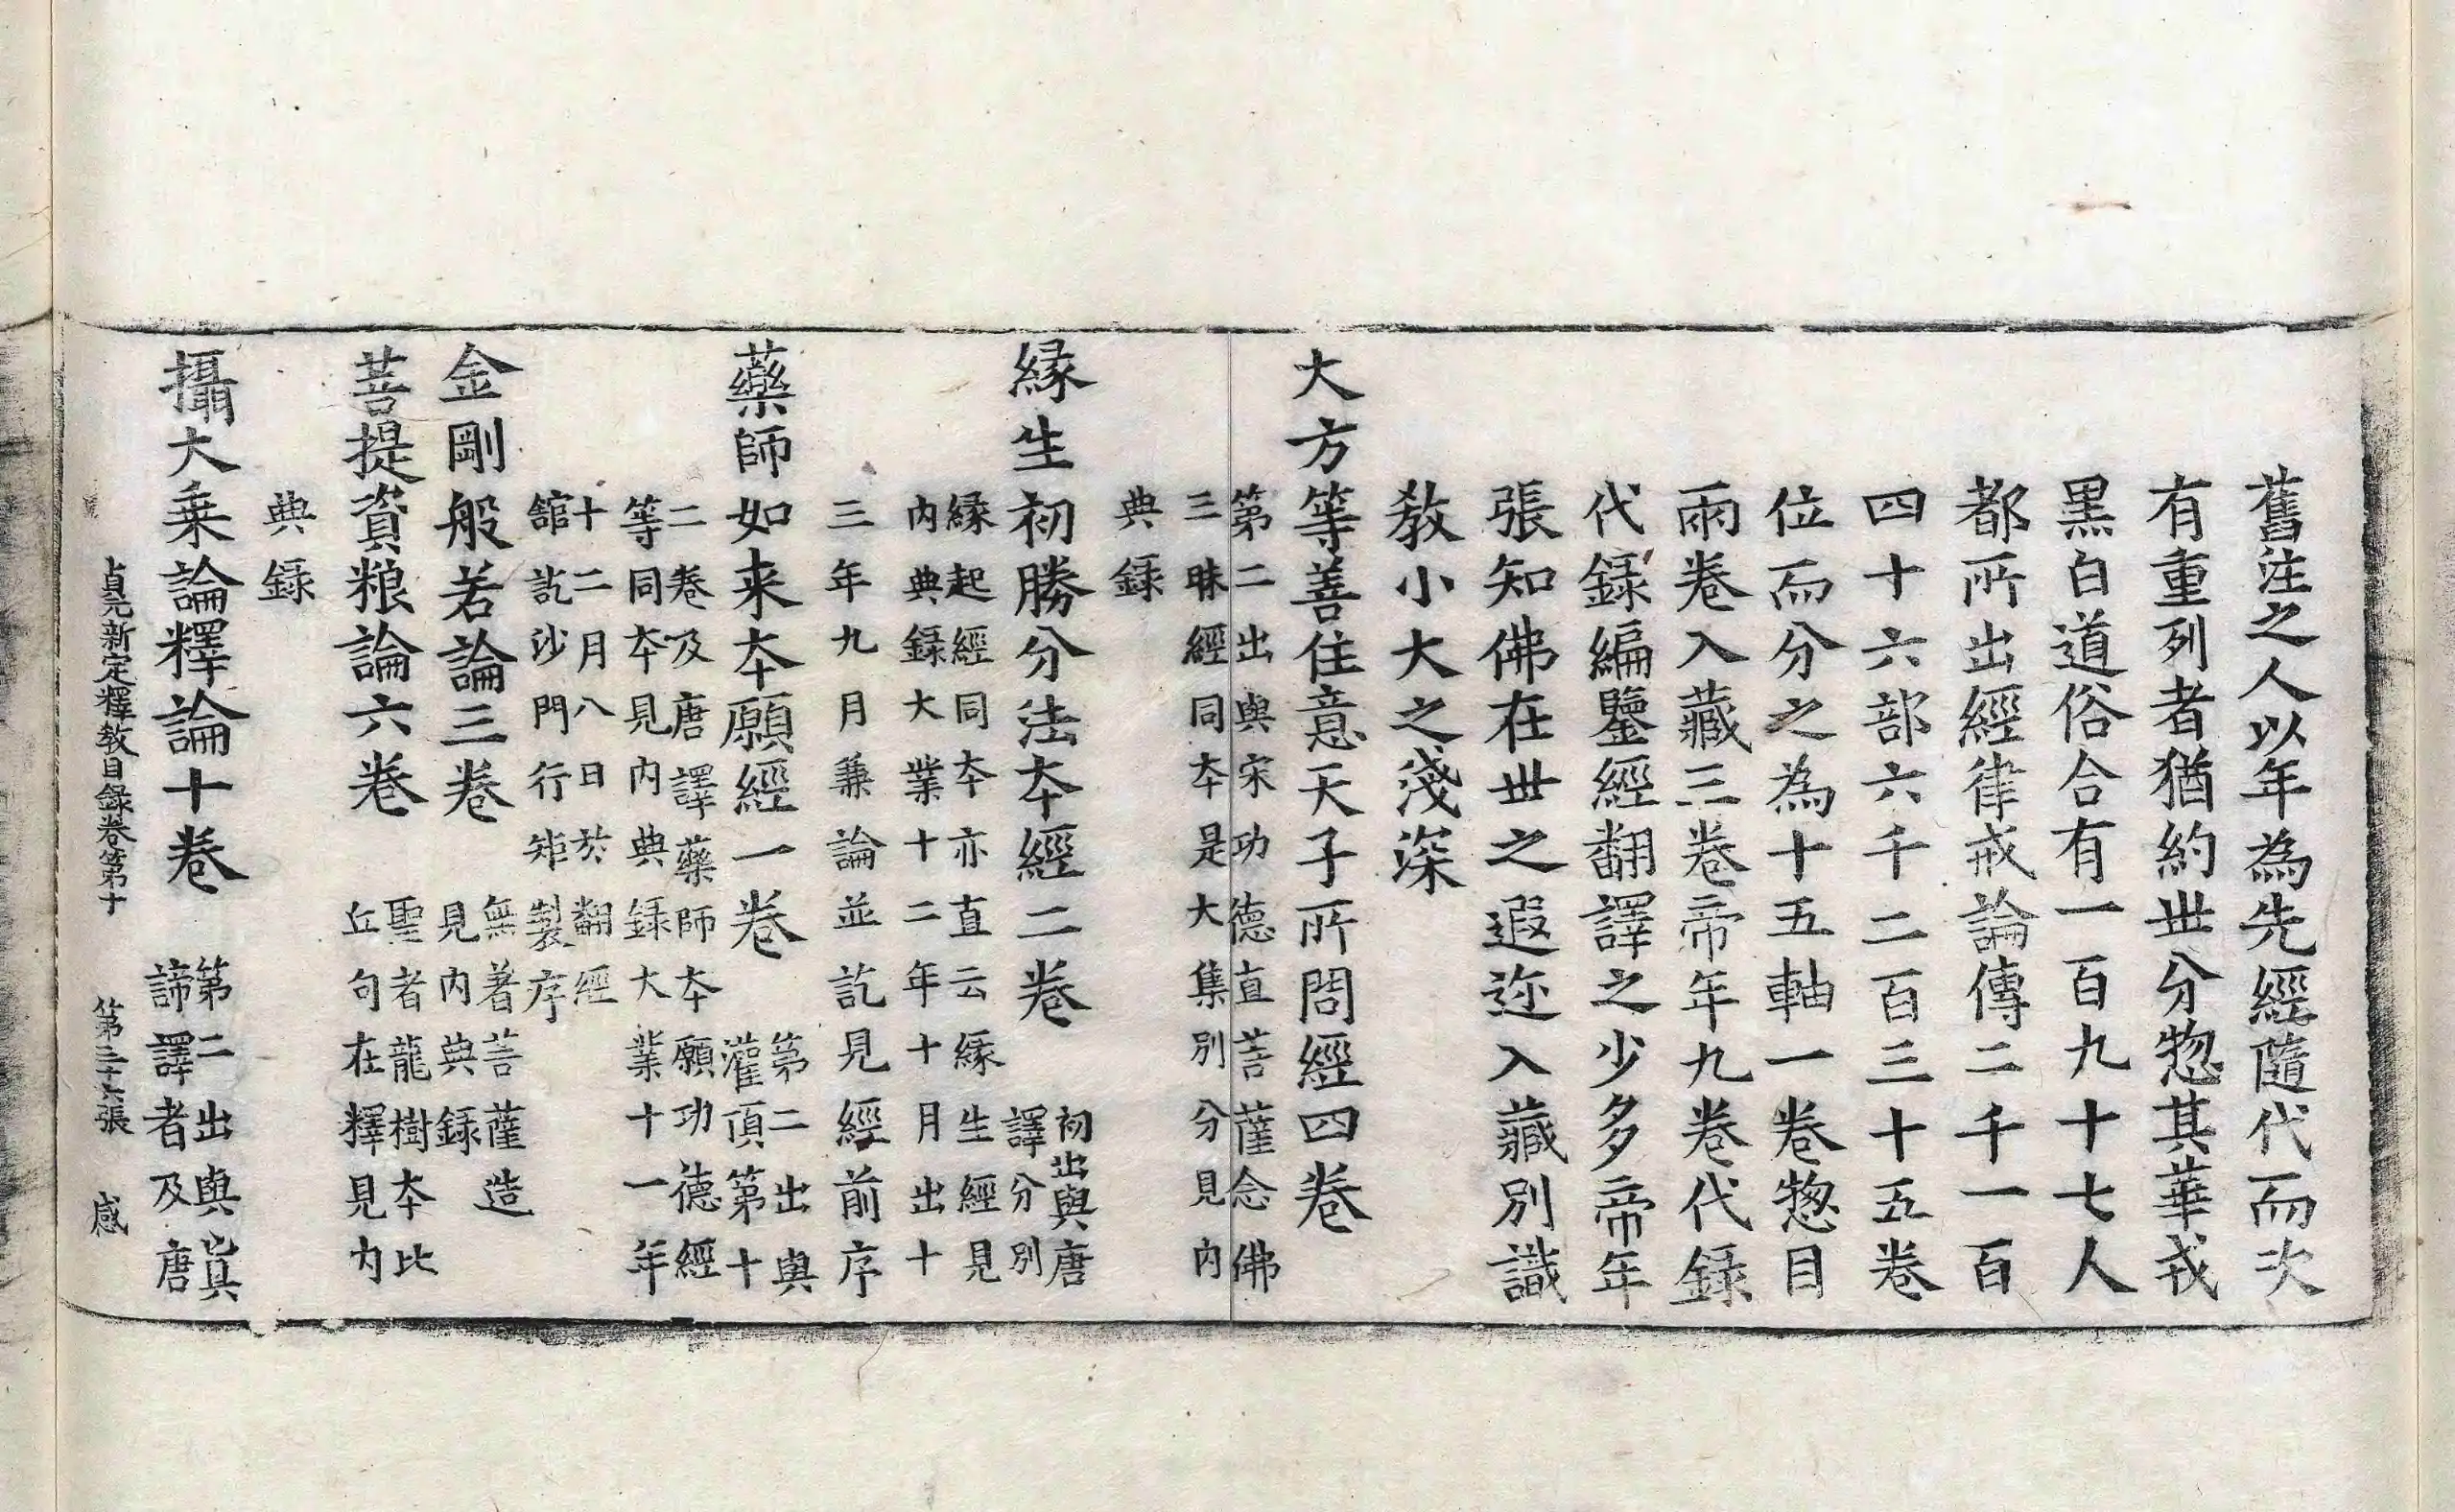 舊注之人以年為先經隨代而次
有重列者猶約世分惣其華戎
黑白道俗合有一百九十七人
都所出經律戒論傳二千一百
四十六部六千二百三十五卷
位而分之為十五軸一卷惣目
兩卷入藏三卷帝年九卷代錄
代錄編鑒經翻譯之少多帝年
張知佛在世之遐迩入藏別識
教小大之淺深
大方等善住意天子所問經四卷
第二出與宋功德直菩薩念佛
三昧經同本是大集別分見內
典錄
緣生初勝分法本經二卷
初出與唐
譯分別
緣起經同本亦直云緣生經見
內典錄大業十二年十月出十
三年九月兼論並訖見經前序
藥師如来本願經一卷
第二出與
灌頂第十
二卷及唐譯藥師本願功德經
等同本見內典錄大業十一年
十二月八日於翻經
舘訖沙門行矩製序
金剛般若論三卷
無著菩薩造
見內典錄
菩提資粮論六卷
聖者龍樹本比
丘句在釋見內
典錄
攝大乗論釋論十卷
第二出與真
諦譯者及唐
貞元新定釋教目錄卷第十 第三十六張 感